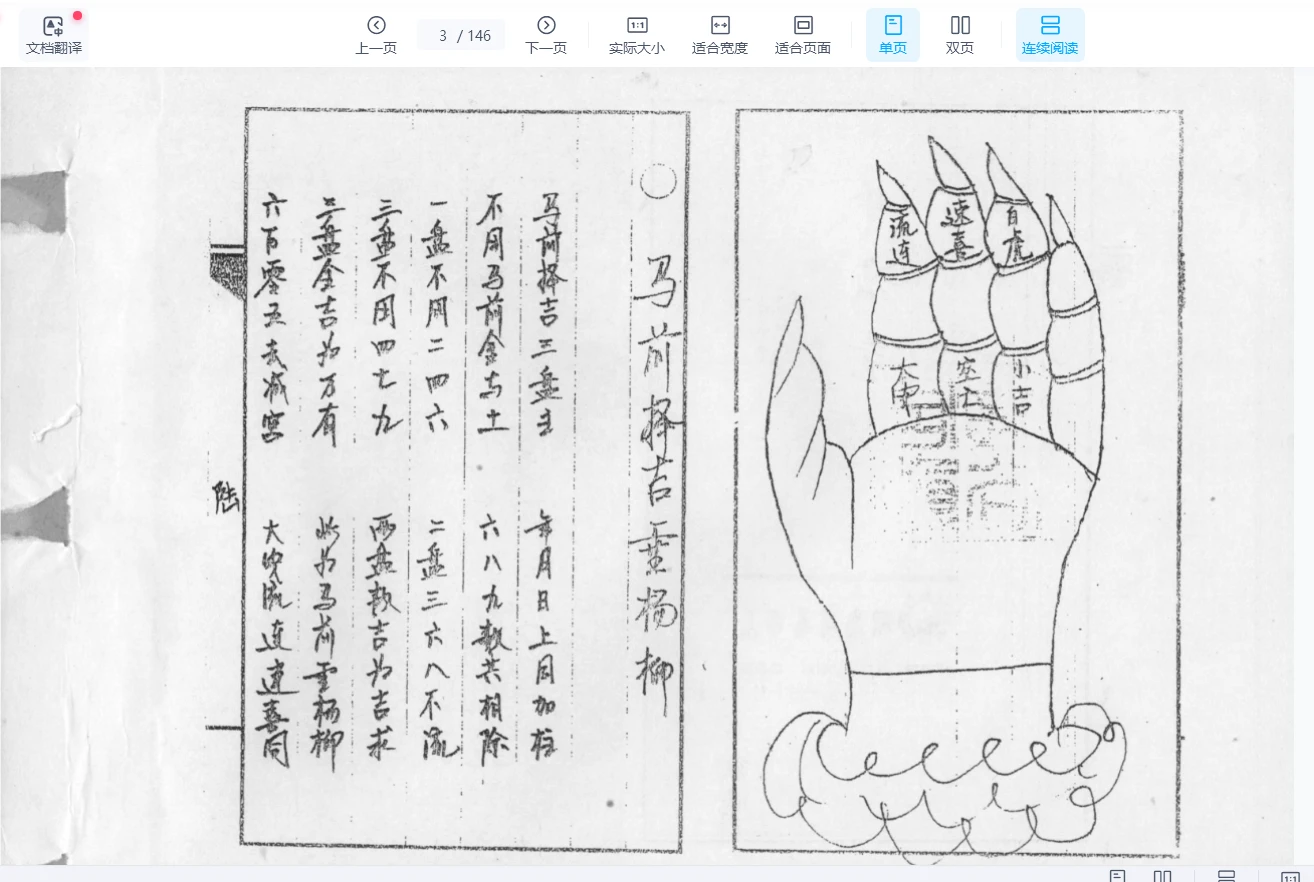 文档翻译
上一页
3 / 146
下一页
1:1
实际大小
适合宽度
适合页面
单页
双页
连续阅读
流连
速喜
白虎
大中
空亡
小吉
○ 马前择吉灵杨柳
马前择吉三盘主 年月日上同加柱
不用马前金与土 六八九数共相除
一盘不用二四六 二盘三六八不流
三盘不用四七九 两盘数吉为吉求
三盘全吉为万有 此为马前灵杨柳
六百零五去减宫 大中流连速喜同
陆